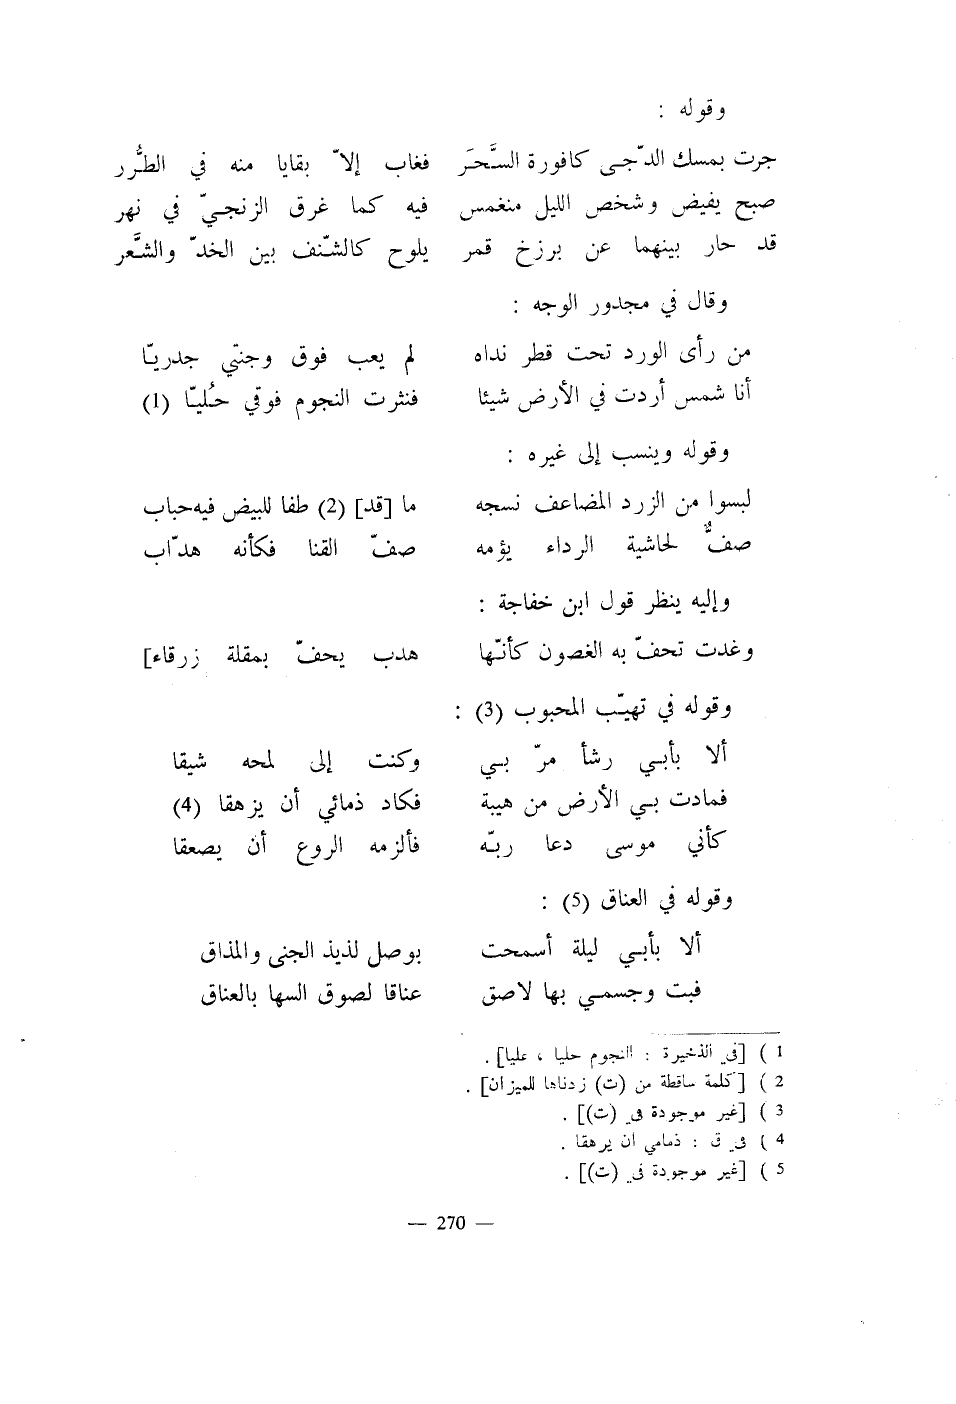 وقوله :
جرت بمسك الدّجى كافورة السَّحَر فغاب إلاّ بقايا منه في الطُّرر
صبح يفيض وشخص الليل منغمس فيه كما غرق الزنجيّ في نهر
قد حار بينهما عن برزخ قمر يلوح كالشّنف بين الخدّ والشَّعر
وقال في مجدور الوجه :
من رأى الورد تحت قطر نداه لم يعب فوق وجنتي جدريّا
أنا شمس أردت في الأرض شيئا فنثرت النجوم فوقي حُليّا (1)
وقوله وينسب إلى غيره :
لبسوا من الزرد المضاعف نسجه ما [قد] (2) طفا للبيض فيه حباب
صفٌّ لحاشية الرداء يؤمه صفّ القنا فكأنه هدّاب
وإليه ينظر قول ابن خفاجة :
وغدت تحفّ به الغصون كأنّها هدب يحفّ بمقلة زرقاء]
وقوله في تهيّب المحبوب (3) :
ألا بأبي رشأ مرّ بي وكنت إلى لمحه شيقا
فمادت بي الأرض من هيبة فكاد ذمائي أن يزهقا (4)
كأني موسى دعا ربّه فألزمه الروع أن يصعقا
وقوله في العناق (5) :
ألا بأبي ليلة أسمحت بوصل لذيذ الجنى والمذاق
فبت وجسمي بها لاصق عناقا لصوق السها بالعناق
1 ) [في الذخيرة : النجوم حليا ، عليا] .
2 ) [كلمة ساقطة من (ت) زدناها للميزان] .
3 ) [غير موجودة في (ت)] .
4 ) في ق : ذمامي ان يرهقا .
5 ) [غير موجودة في (ت)] .
— 270 —